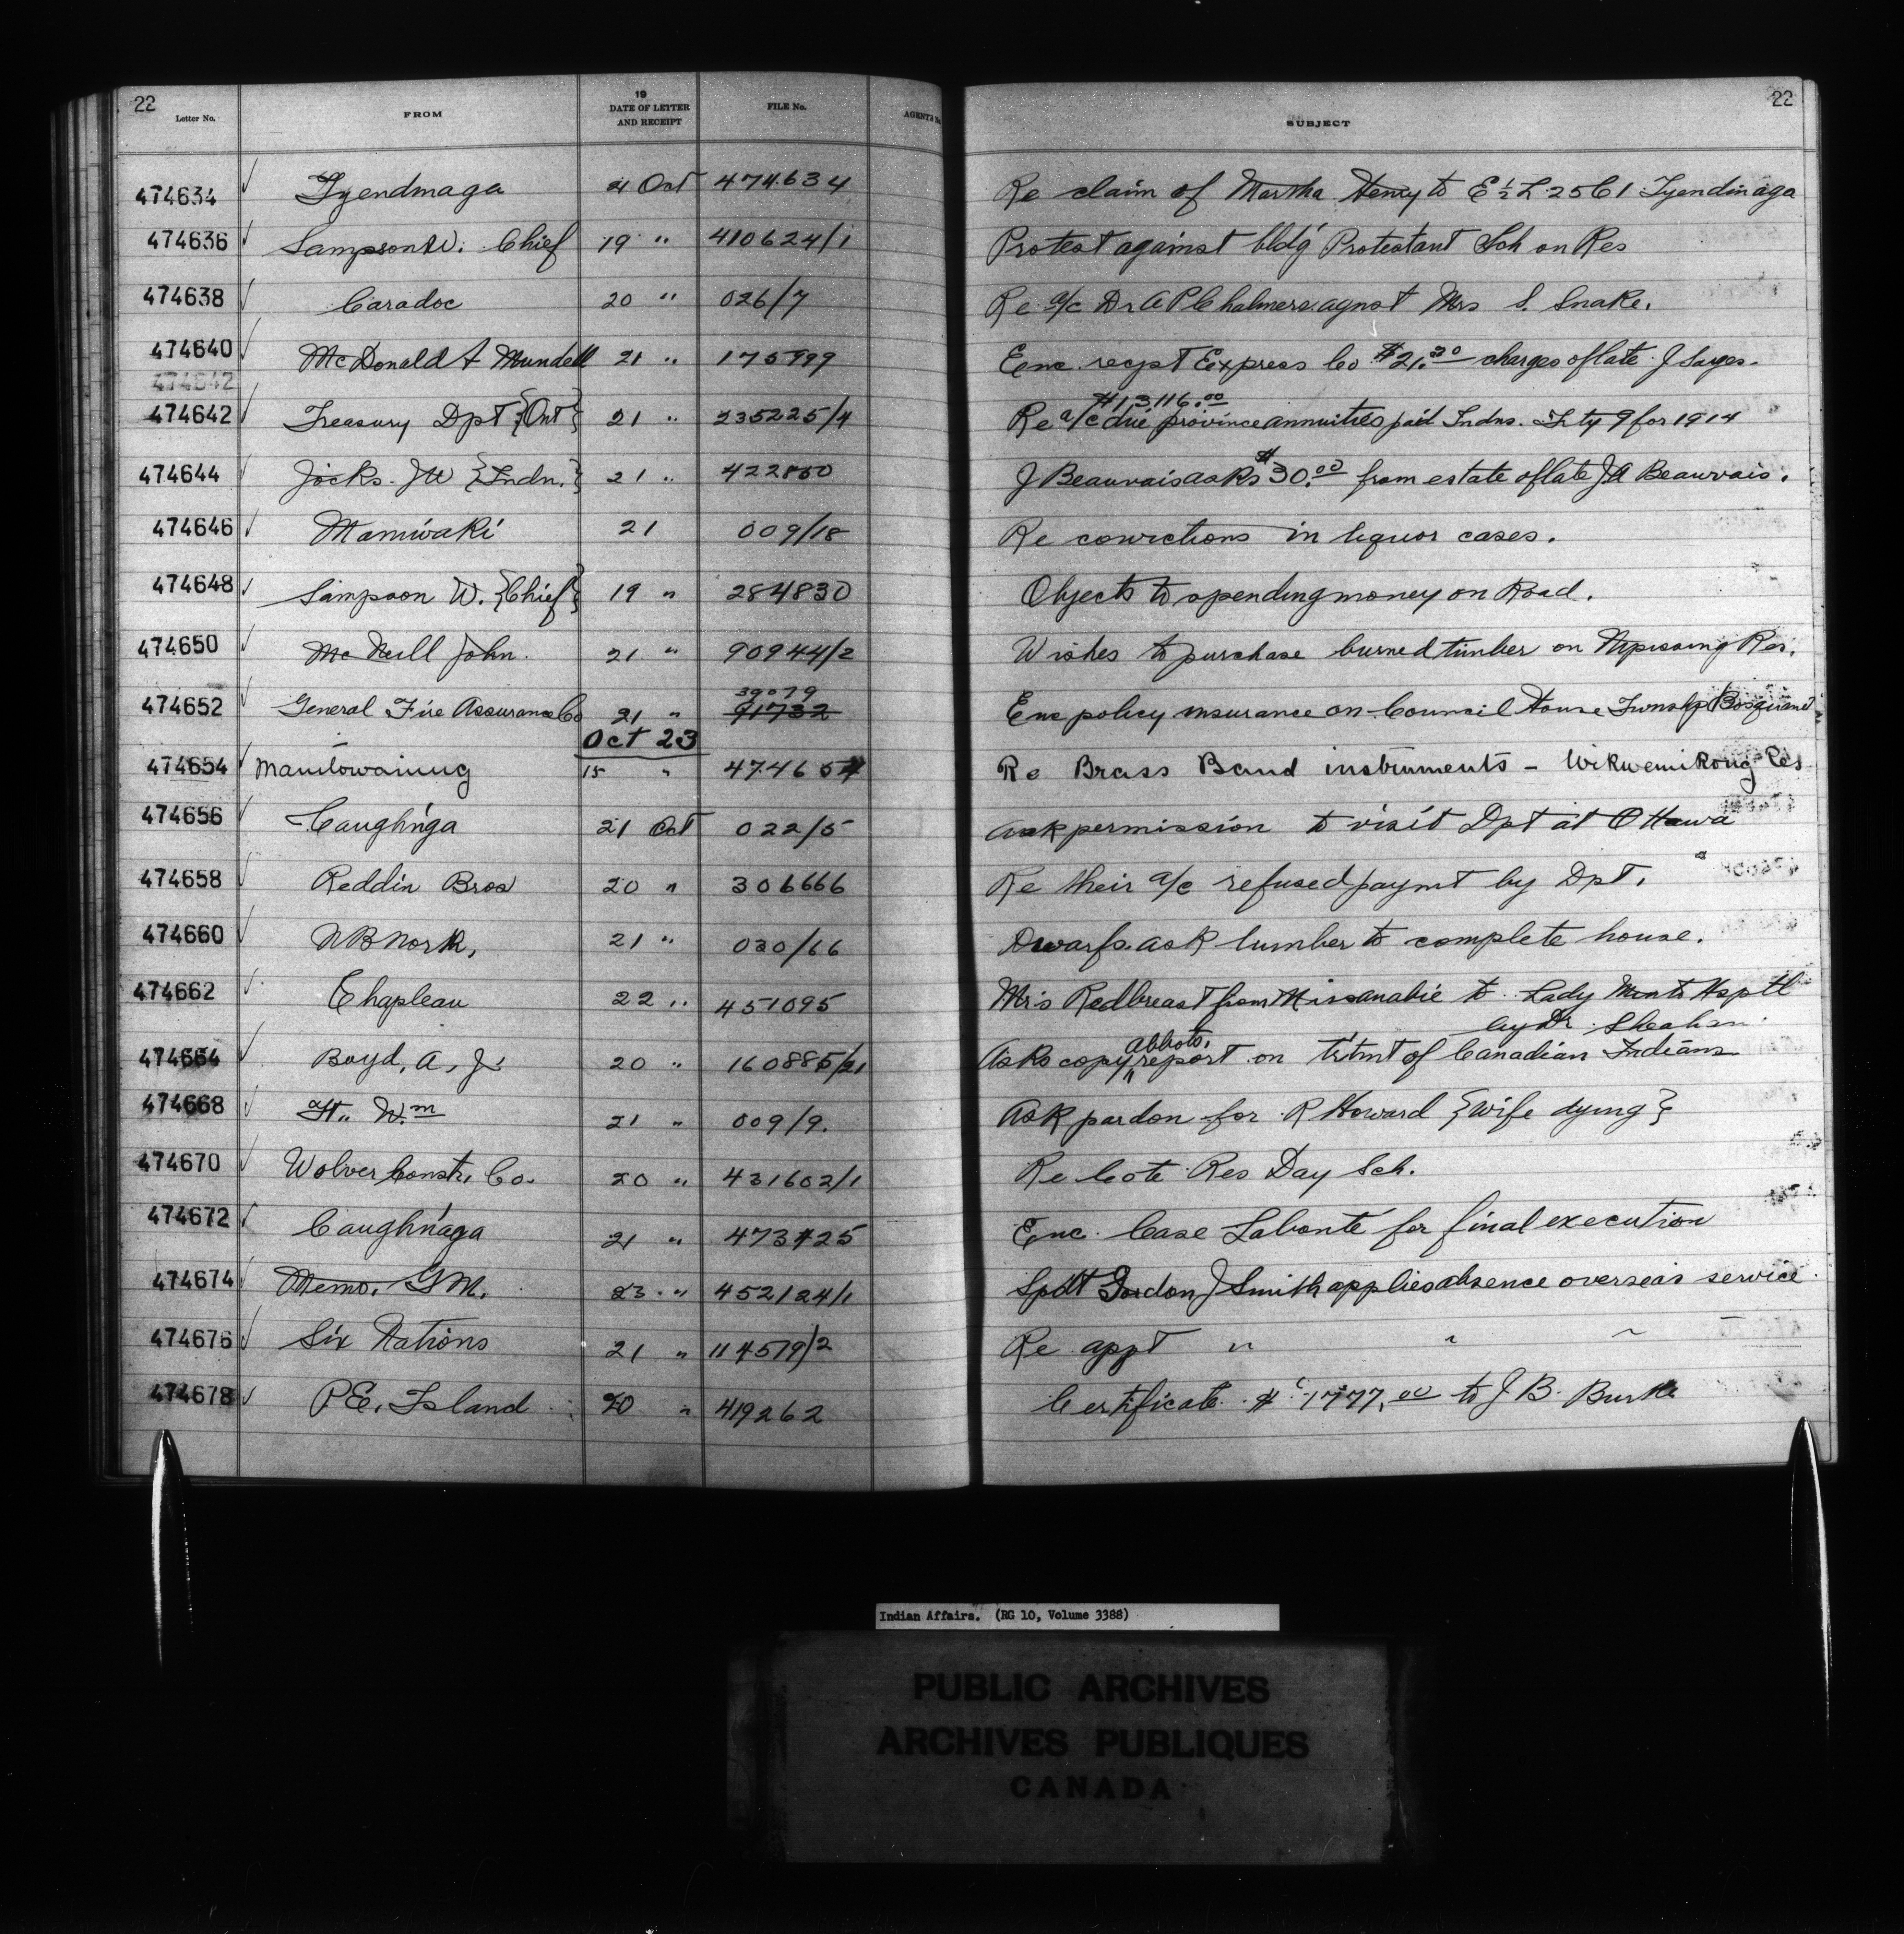 22 22
Letter No. FROM 19 DATE OF LETTER AND RECEIPT FILE No. AGENT'S No. SUBJECT
474634 Tyendinaga 21 Oct 474634 Re claim of Martha Henry to E ½ L 25 C 1 Tyendinaga
474636 Sampson W. Chief 19 " 410624/1 Protest against bldg Protestant Sch on Res
474638 Caradoc 20 " 026/7 Re a/c Dr A P Chalmers agnst Mrs S. Snake.
474640 McDonald & Mundell 21 " 175999 Enc. recpt Express Co $21.30 charges of late J Sayes.
474642
$13116.00
474642 Treasury Dpt {Ont} 21 " 235225/4 Re a/c due province annuities paid Indns. Trty 9 for 1914
474644 Jocks. J W {Indn.} 21 " 422850 J Beauvais asks $30.00 from estate of late J A Beauvais.
474646 Maniwaki 21 009/18 Re convictions in liquor cases.
474648 Sampson W. {Chief} 19 " 284830 Objects to spending money on Road.
474650 McNeill John. 21 " 90944/2 Wishes to purchase burned timber on Nipissing Res.
39079
474652 General Fire Assurance Co 21 " 91732 Enc policy insurance on Council House Twnshp Bosquanet
Oct 23
474654 Manitowaning 15 " 474654 Re Brass Band instruments - Wikwemikong Res
474656 Caughn'ga 21 Oct 022/5 Ask permission to visit Dpt at Ottawa
474658 Reddin Bros 20 " 306666 Re their a/c refused paymt by Dpt.
474660 N B North, 21 " 030/66 Dwarfs ask lumber to complete house.
474662 Chapleau 22 " 451095 Mrs Redbreast from Missanabie to Lady Minto Hsptl
by Dr Sheahan.
abbots.
474664 Boyd, A, J. 20 " 160885/21 Asks copy report on trtmt of Canadian Indians
474668 Ft. Wm 21 " 009/9. Ask pardon for R Howard {wife dying}
474670 Wolver Constr. Co. 20 " 431602/1 Re Cote Res Day Sch.
474672 Caughn'aga 21 " 473725 Enc. Case Labonte for final execution
474674 Memo. G M. 23 " 452124/1 Spdt Gordon J Smith applies absence overseas service.
474676 Six Nations 21 " 114579/2 Re appt " " "
474678 P E. Island 20 " 419262 Certificate $1777.00 to J B. Burke
Indian Affairs. (RG 10, Volume 3388)
PUBLIC ARCHIVES
ARCHIVES PUBLIQUES
CANADA